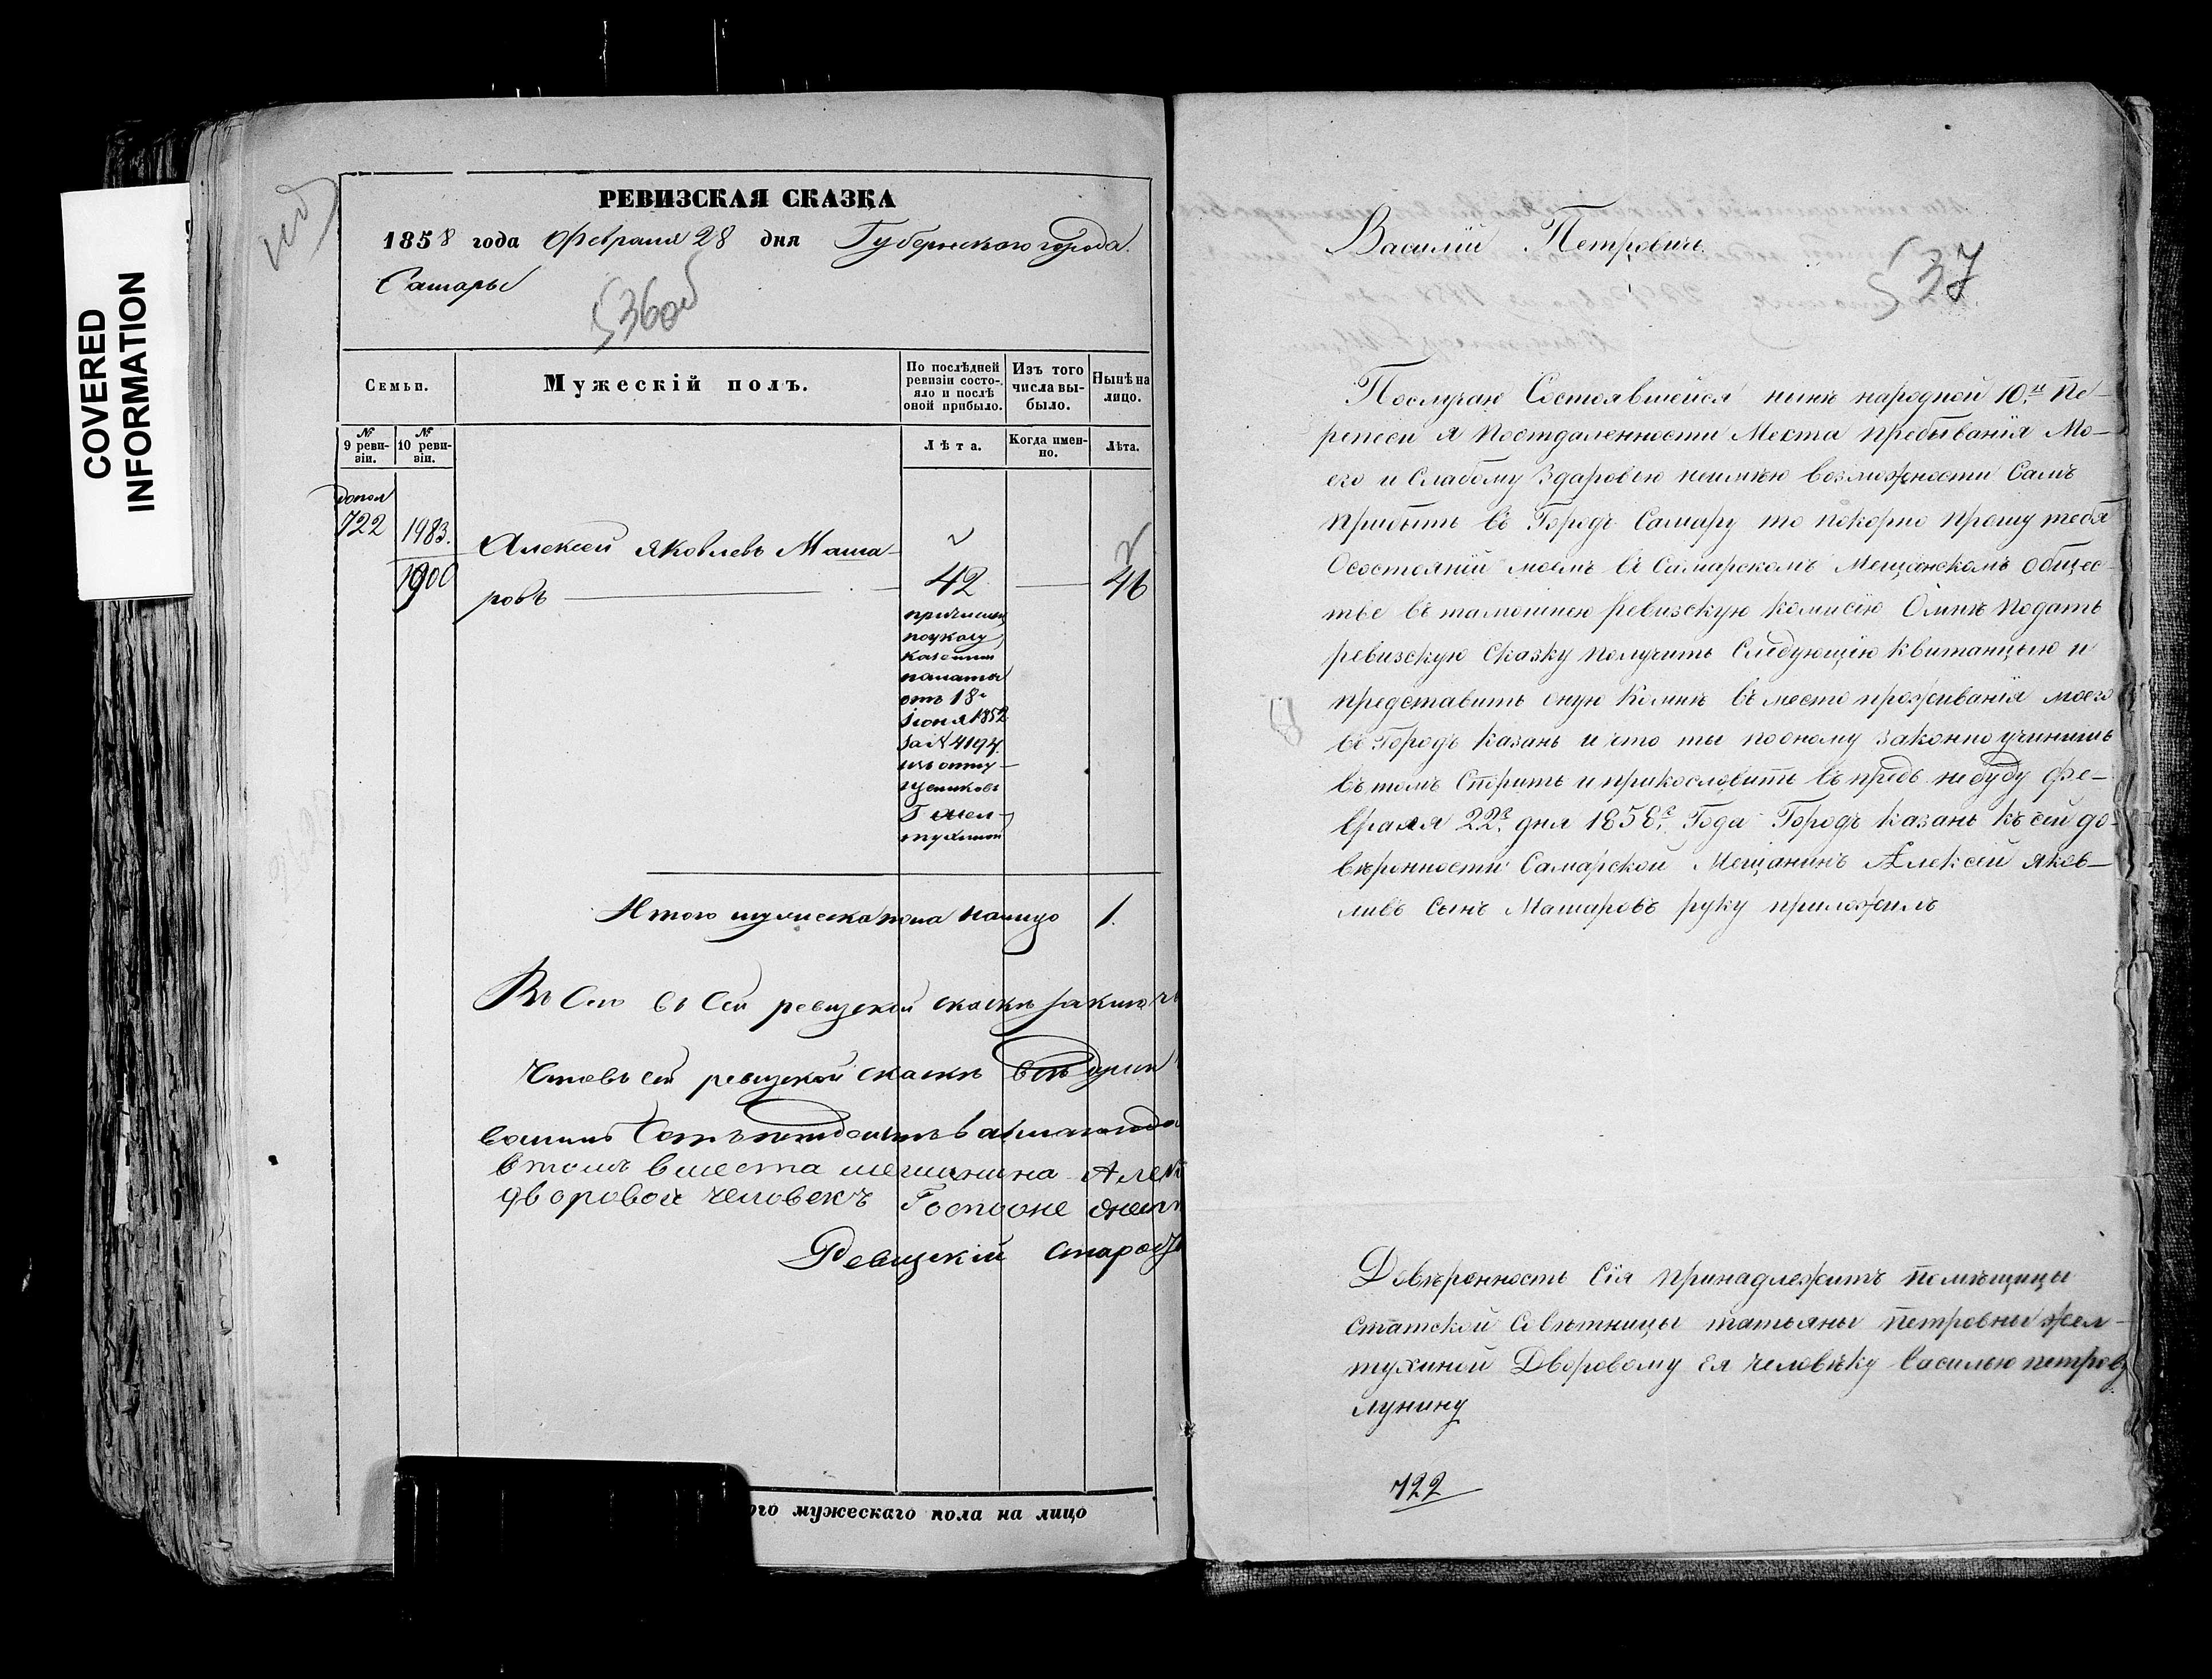 COVERED
INFORMATION
РЕВИЗСКАЯ СКАЗКА
1858 года Февраля 28 дня Губернскаго города
Самары
536об
Семьи.
Мужескій полъ.
По послѣдней ревизіи состояло и послѣ оной прибыло.
Изъ того числа выбыло.
Нынѣ на лицо.
№ 9 ревизіи.
№ 10 ревизіи.
Лѣта.
Когда именно.
Лѣта.
допол
722
1983.
1900
Алексей Яковлевъ Маша-
ровъ
42
46
причислен
поуказу
казенной
палаты
отъ 18
Іюня 1852
за N 4194
изъ отпу-
щениковъ
Г Жел-
тухиной
Итого мужеска пола налицо 1.
Въ сей ревизской сказке
Чтовъ сей ревизской сказке
в томъ вместа мещанина Алек
дворовой человекъ Госпоже
Ревизскій Староста
ого мужескаго пола на лицо
Василій Петровичь
537
Послучаю Состоявшейся ныне народной 10й Пе-
реписи я Поотдаленности Места пребыванія Мо-
его и Слабому Здаровью неимѣю возможности Самъ
прибыть въ Городъ Самару то покорно прошу тебя
Осостояніи моемъ въ Самарскомъ Мещанскомъ общес-
тве въ тамошнею Ревизскую комисію Омнѣ подать
ревизскую сказку получить Следующію квитанцыю и
представить оную Комнѣ въ место проживанія моего
въ Городъ казань и что ты пооному законно учинишь
въ томъ Спорить и прикословить въ предь небуду фе-
враля 22го дня 1858го Года Городъ казань къ сей до-
вѣренности Самарской Мещанинъ Алексей яков-
ливъ Сынъ Машаровъ руку приложилъ
Довѣренность Сія принадлежитъ помѣщицы
статской Совѣтницы татьяны петровны жел-
тухиной Дворовому ея человѣку василью петрову
лунину
722